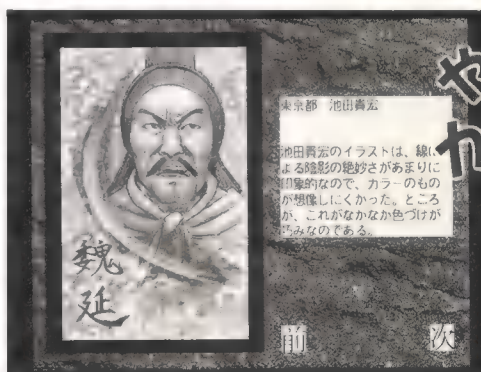 東京都 池田貴宏
池田貴宏のイラストは、線に
よる陰影の絶妙さがあまりに
印象的なので、カラーのもの
が想像しにくかった。ところ
が、これがなかなか色づけが
巧みなのである。
魏
延
前 次
や
カ